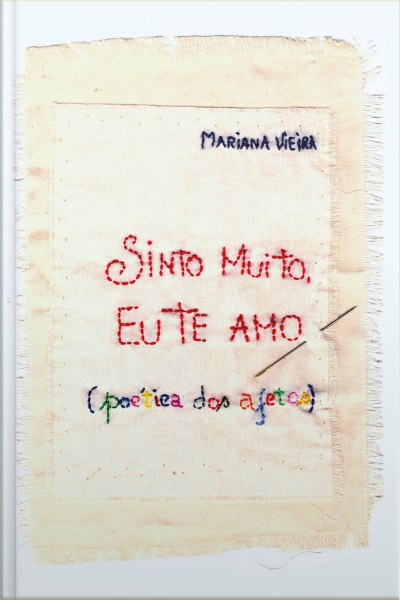 Mariana Vieira
Sinto Muito,
Eu te amo
(poética dos afetos)